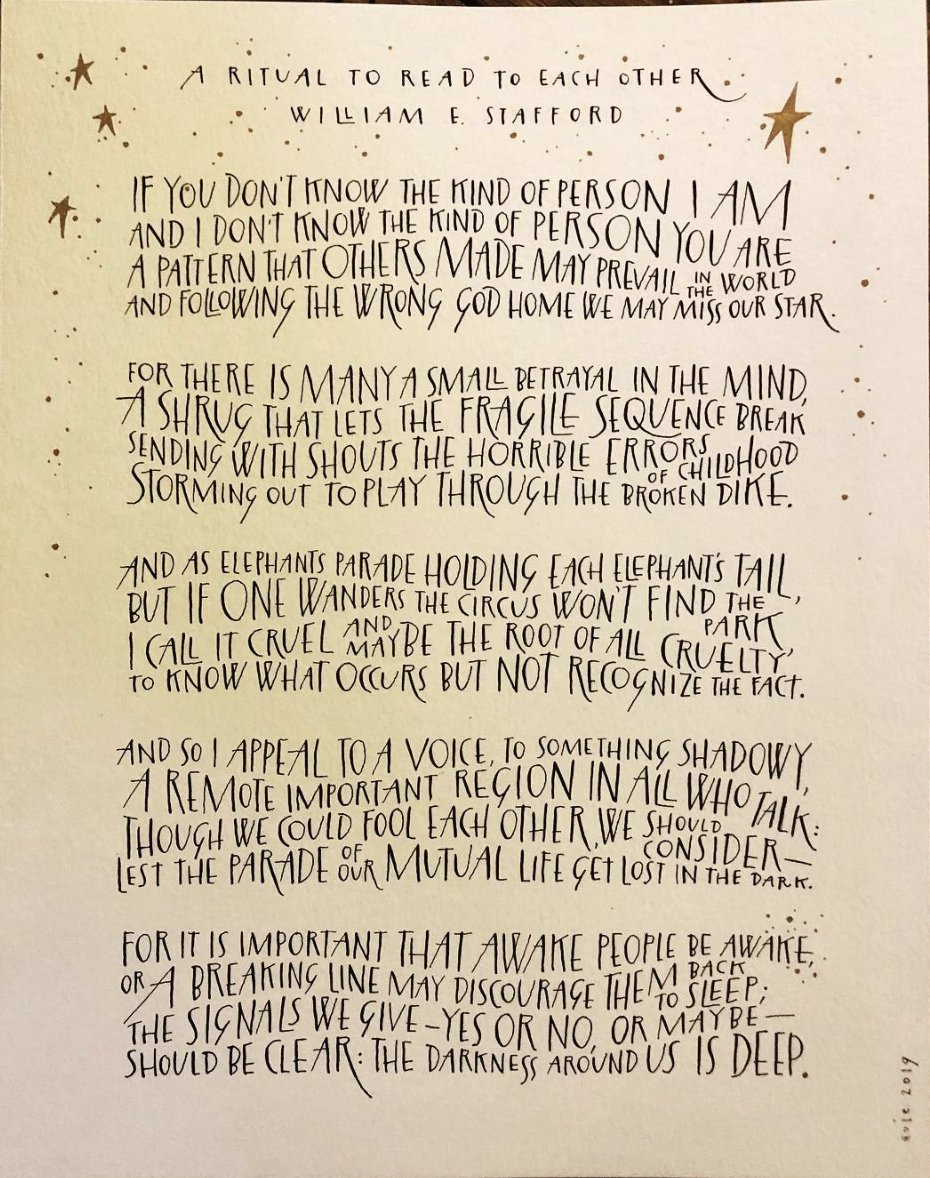 A RITUAL TO READ TO EACH OTHER
WILLIAM E. STAFFORD
IF YOU DON'T KNOW THE KIND OF PERSON I AM
AND I DON'T KNOW THE KIND OF PERSON YOU ARE
A PATTERN THAT OTHERS MADE MAY PREVAIL IN THE WORLD
AND FOLLOWING THE WRONG GOD HOME WE MAY MISS OUR STAR.
FOR THERE IS MANY A SMALL BETRAYAL IN THE MIND,
A SHRUG THAT LETS THE FRAGILE SEQUENCE BREAK
SENDING WITH SHOUTS THE HORRIBLE ERRORS OF CHILDHOOD
STORMING OUT TO PLAY THROUGH THE BROKEN DIKE.
AND AS ELEPHANTS PARADE HOLDING EACH ELEPHANT'S TAIL,
BUT IF ONE WANDERS THE CIRCUS WON'T FIND THE PARK
I CALL IT CRUEL AND MAYBE THE ROOT OF ALL CRUELTY,
TO KNOW WHAT OCCURS BUT NOT RECOGNIZE THE FACT.
AND SO I APPEAL TO A VOICE, TO SOMETHING SHADOWY,
A REMOTE IMPORTANT REGION IN ALL WHO TALK:
THOUGH WE COULD FOOL EACH OTHER, WE SHOULD CONSIDER—
LEST THE PARADE OF OUR MUTUAL LIFE GET LOST IN THE DARK.
FOR IT IS IMPORTANT THAT AWAKE PEOPLE BE AWAKE,
OR A BREAKING LINE MAY DISCOURAGE THEM BACK TO SLEEP;
THE SIGNALS WE GIVE—YES OR NO, OR MAYBE—
SHOULD BE CLEAR: THE DARKNESS AROUND US IS DEEP.
evie 2019